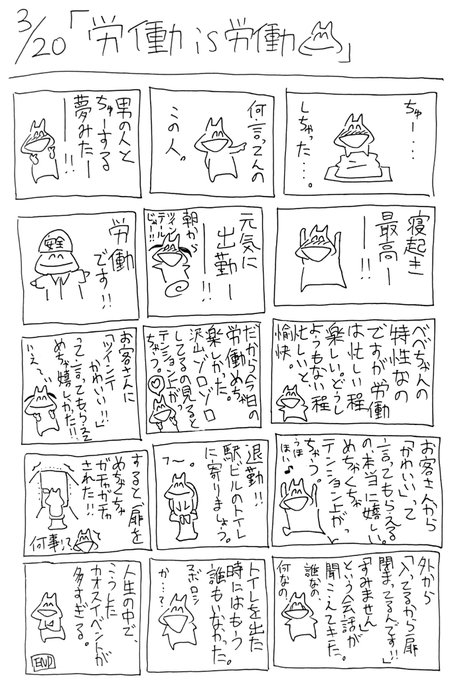 3/20「労働is労働」
ちゅー‥‥
しちゃった‥。
何言ってんの
この人。
男の人と
ちゅーする
夢みたー
ーー!!
寝起き
最高ー
ーー!!
元気に
出勤ー
ーー!!
朝から
ツインテールじゃー!!
労働
です!!
べべちゃんの
特性なの
ですが労働
は忙しい程
楽しい。どうし
ようもない程
忙しいと、
愉快。
だから今日の
労働めちゃ
楽しかた。
沢山ゾロゾロ
してるの見ると
テンション上が
ちゃう。
お客さんに
「ツインテ
かわいい!!」
って言ってもらえて
めちゃ嬉しかた!!
いぇ〜い
お客さんから
「かわいい」って
言ってもらえる
の、本当に嬉しい。
めちゃくちゃ
テンション上がっ
ちゃう。
うほほーい♪
退勤!!
駅ビルのトイレ
に寄りましょう。
ふ〜。
すると、扉を
めちゃくちゃ
ガチャガチャ
された!!
何事!?
外から
「入ってるから扉
閉まってるんです!!」
「すみません」
という会話が
聞こえてキた。
誰なの、
何なの。
トイレを出た
時にはもう
誰もいなかった。
マボロシ
か‥?
人生の中で、
こうした
カオスイベントが
多すぎる。
END